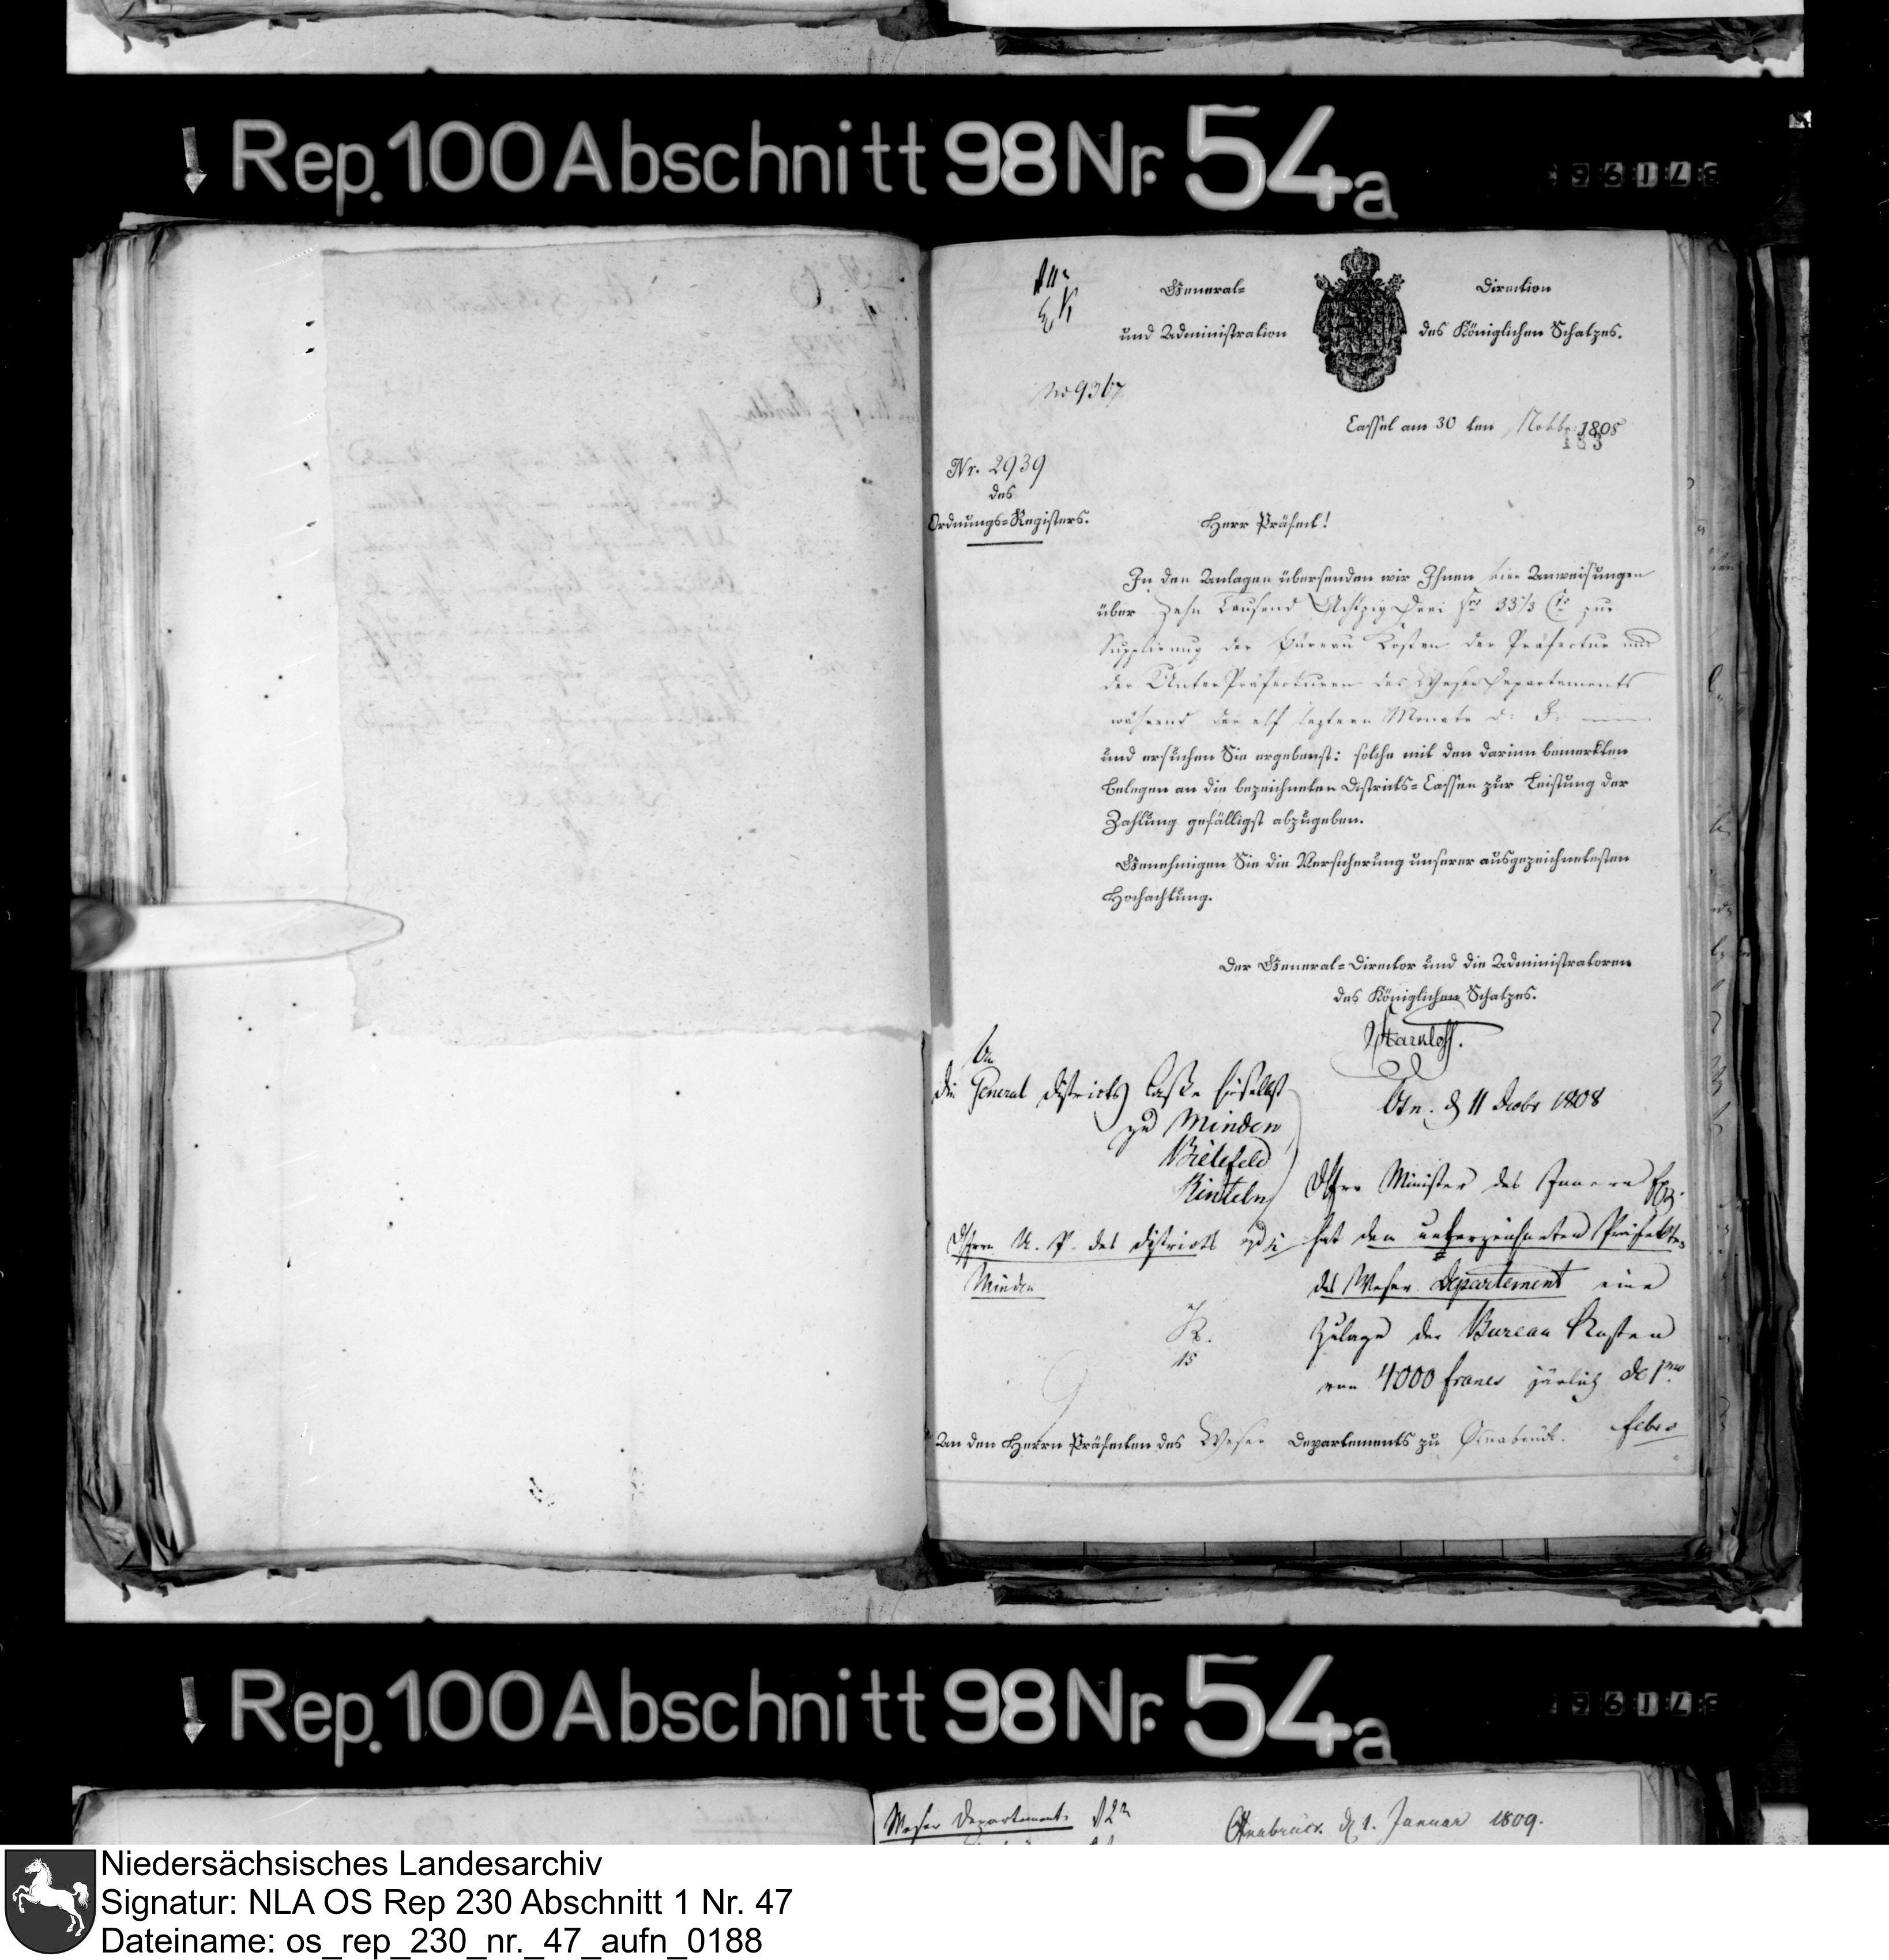 Rep. 100 Abschnitt 98 Nr. 54a
General- Direction
und Administration des Königlichen Schatzes.
No 9367
Cassel am 30 ten Novbr. 1808
183
Nr. 2939
des
Ordnungs-Registers.
Herr Präfect!
In den Anlagen übersenden wir Ihnen vier Anweisungen
über Zehn Tausend Achtzig Drei frs 33 1/3 Cs zur
Supplirung der Büreau Kosten der Präfectur und
der UnterPräfecturen des Weser Departements
während der elf leztern Monate d. J.
und ersuchen Sie ergebenst: solche mit den darinn bemerkten
Belegen an die bezeichneten Districts-Cassen zur Leistung der
Zahlung gefälligst abzugeben.
Genehmigen Sie die Versicherung unserer ausgezeichnetesten
Hochachtung.
Der General-Director und die Administratoren
des Königlichen Schatzes.
An
die General Districts Casse hieselbst
zu Minden
Bielefeld
Rinteln
Osn. d 11 Decbr 1808
Herrn U. P. des Districts zu
Minden
15
Minister des Innern
hat dem unterzeichneten Präfekten
des Weser Departement eine
Zulage der Bureau Kosten
von 4000 francs järlich de 1mo
Febr
An den Herrn Präfecten des Weser Departements zu Osnabrück.
Rep. 100 Abschnitt 98 Nr. 54a
Weser Departement
Osnabrück d 1. Januar 1809.
Niedersächsisches Landesarchiv
Signatur: NLA OS Rep 230 Abschnitt 1 Nr. 47
Dateiname: os_rep_230_nr._47_aufn_0188